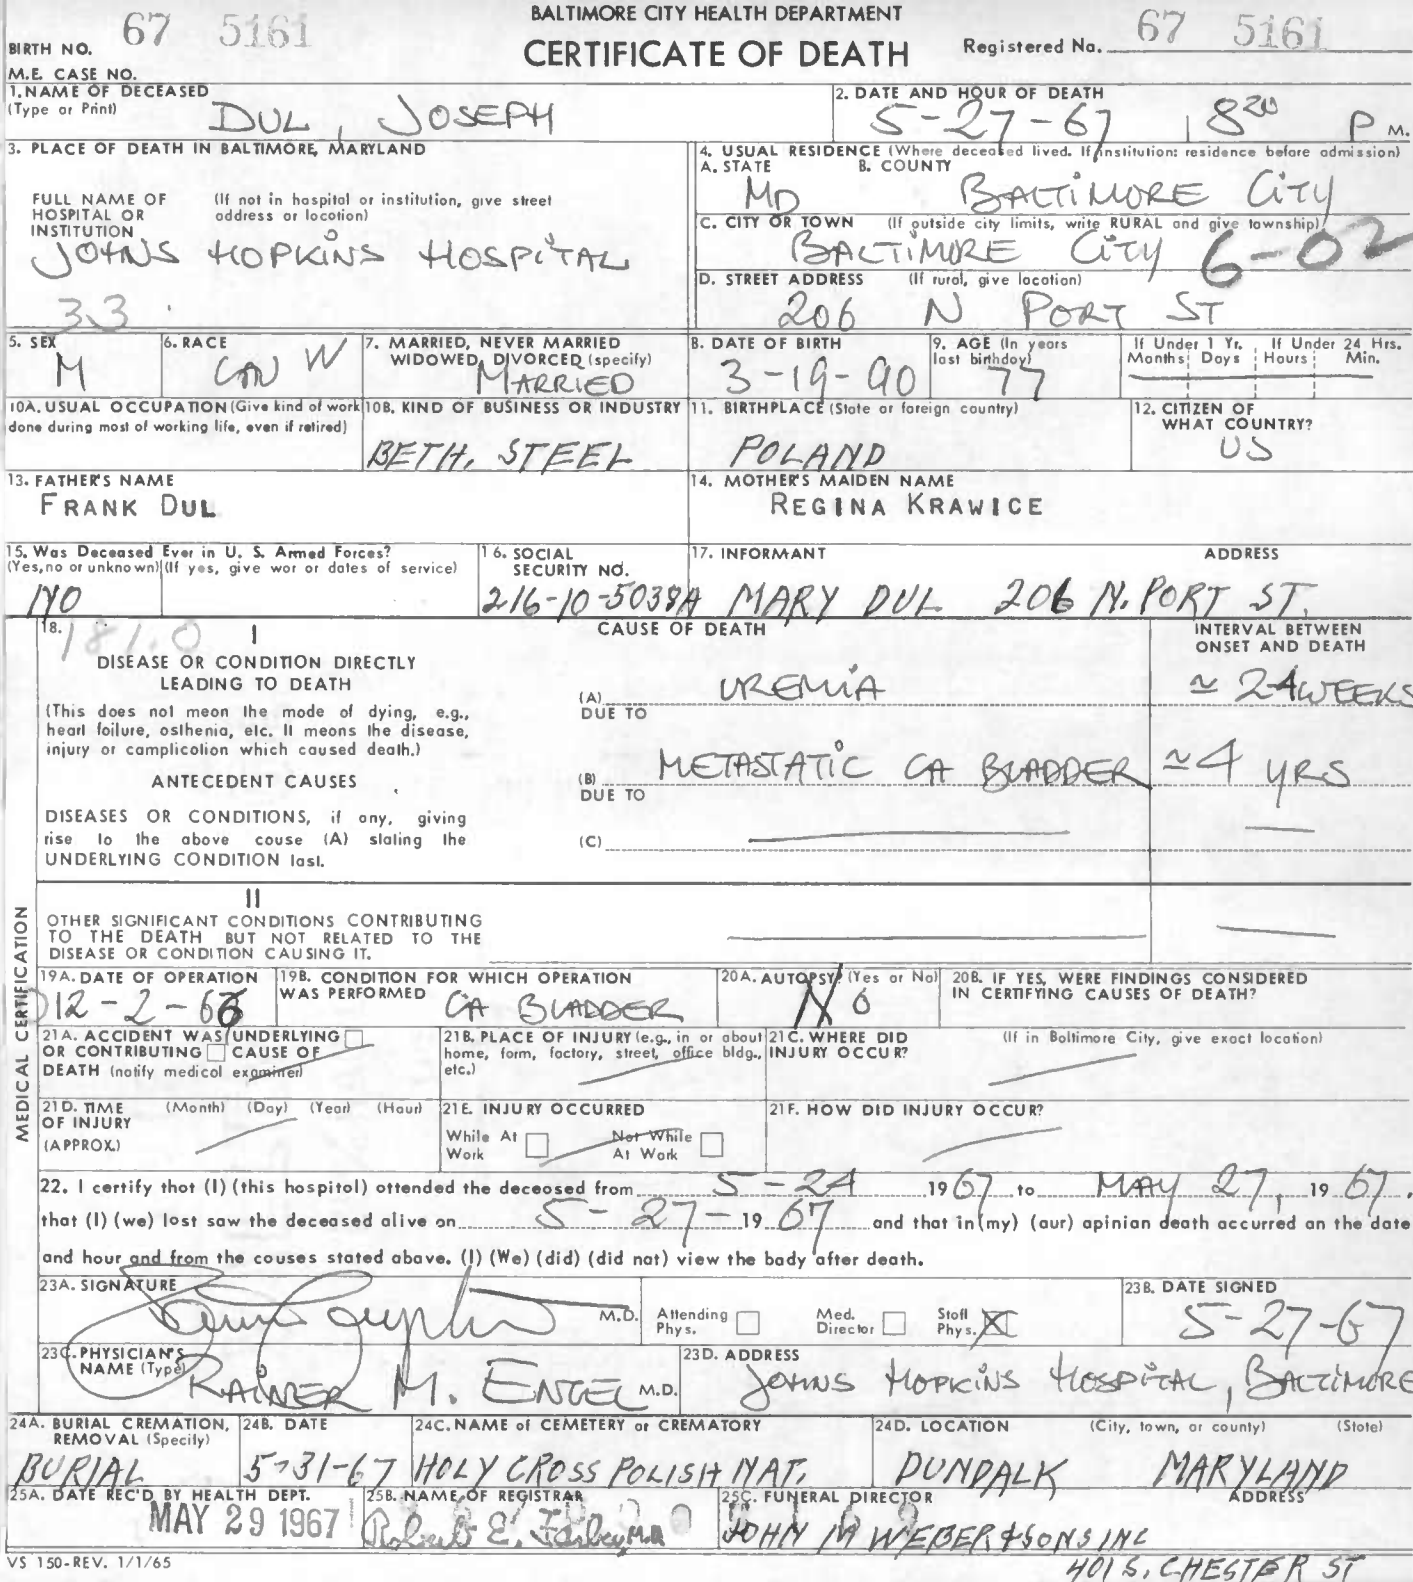 BALTIMORE CITY HEALTH DEPARTMENT
CERTIFICATE OF DEATH
BIRTH NO. 67 5161
Registered No. 67 5161
M.E. CASE NO.
1. NAME OF DECEASED
(Type or Print)
DUL, JOSEPH
2. DATE AND HOUR OF DEATH
5-27-67 8 20 P M.
3. PLACE OF DEATH IN BALTIMORE, MARYLAND
FULL NAME OF HOSPITAL OR INSTITUTION
(If not in hospital or institution, give street address or location)
JOHNS HOPKINS HOSPITAL
33
4. USUAL RESIDENCE (Where deceased lived. If institution: residence before admission)
A. STATE B. COUNTY
MD BALTIMORE CITY
C. CITY OR TOWN (If outside city limits, write RURAL and give township)
BALTIMORE CITY 6-02
D. STREET ADDRESS (If rural, give location)
206 N PORT ST
5. SEX
M
6. RACE
CAU W
7. MARRIED, NEVER MARRIED
WIDOWED, DIVORCED (specify)
MARRIED
8. DATE OF BIRTH
3-19-90
9. AGE (In years last birthday)
77
If Under 1 Yr. If Under 24 Hrs.
Months Days Hours Min.
10A. USUAL OCCUPATION (Give kind of work done during most of working life, even if retired)
10B. KIND OF BUSINESS OR INDUSTRY
BETH. STEEL
11. BIRTHPLACE (State or foreign country)
POLAND
12. CITIZEN OF WHAT COUNTRY?
US
13. FATHER'S NAME
FRANK DUL
14. MOTHER'S MAIDEN NAME
REGINA KRAWICE
15. Was Deceased Ever in U. S. Armed Forces?
(Yes, no or unknown) (If yes, give war or dates of service)
NO
16. SOCIAL SECURITY NO.
216-10-5038A
17. INFORMANT ADDRESS
MARY DUL 206 N. PORT ST.
MEDICAL CERTIFICATION
18. 181.0
I
CAUSE OF DEATH
INTERVAL BETWEEN ONSET AND DEATH
DISEASE OR CONDITION DIRECTLY LEADING TO DEATH
(This does not mean the mode of dying, e.g., heart failure, asthenia, etc. It means the disease, injury or complication which caused death.)
(A) UREMIA ≃ 24 WEEKS
DUE TO
ANTECEDENT CAUSES
(B) METASTATIC CA BLADDER ≃ 4 YRS
DUE TO
DISEASES OR CONDITIONS, if any, giving rise to the above cause (A) stating the UNDERLYING CONDITION last.
(C)
II
OTHER SIGNIFICANT CONDITIONS CONTRIBUTING TO THE DEATH BUT NOT RELATED TO THE DISEASE OR CONDITION CAUSING IT.
19A. DATE OF OPERATION
12-2-66
19B. CONDITION FOR WHICH OPERATION WAS PERFORMED
CA BLADDER
20A. AUTOPSY? (Yes or No)
NO
20B. IF YES, WERE FINDINGS CONSIDERED IN CERTIFYING CAUSES OF DEATH?
21A. ACCIDENT WAS UNDERLYING OR CONTRIBUTING CAUSE OF DEATH (notify medical examiner)
21B. PLACE OF INJURY (e.g., in or about home, farm, factory, street, office bldg., etc.)
21C. WHERE DID INJURY OCCUR?
(If in Baltimore City, give exact location)
21D. TIME OF INJURY (APPROX.) (Month) (Day) (Year) (Hour)
21E. INJURY OCCURRED
While At Work Not While At Work
21F. HOW DID INJURY OCCUR?
22. I certify that (I) (this hospital) attended the deceased from 5-24 1967 to MAY 27, 1967,
that (I) (we) last saw the deceased alive on 5-27-1967 and that in (my) (our) opinion death occurred on the date
and hour and from the causes stated above. (I) (We) (did) (did not) view the body after death.
23A. SIGNATURE
M.D. Attending Phys. Med. Director Staff Phys. X
23B. DATE SIGNED
5-27-67
23C. PHYSICIAN'S NAME (Type)
RAINER M. ENGEL M.D.
23D. ADDRESS
JOHNS HOPKINS HOSPITAL, BALTIMORE
24A. BURIAL CREMATION, REMOVAL (Specify)
BURIAL
24B. DATE
5-31-67
24C. NAME of CEMETERY or CREMATORY
HOLY CROSS POLISH NAT.
24D. LOCATION (City, town, or county) (State)
DUNDALK MARYLAND
25A. DATE REC'D BY HEALTH DEPT.
MAY 29 1967
25B. NAME OF REGISTRAR
Robert E. Farber, M.D.
25C. FUNERAL DIRECTOR ADDRESS
JOHN M WEBER & SONS INC
401 S. CHESTER ST
VS 150-REV. 1/1/65